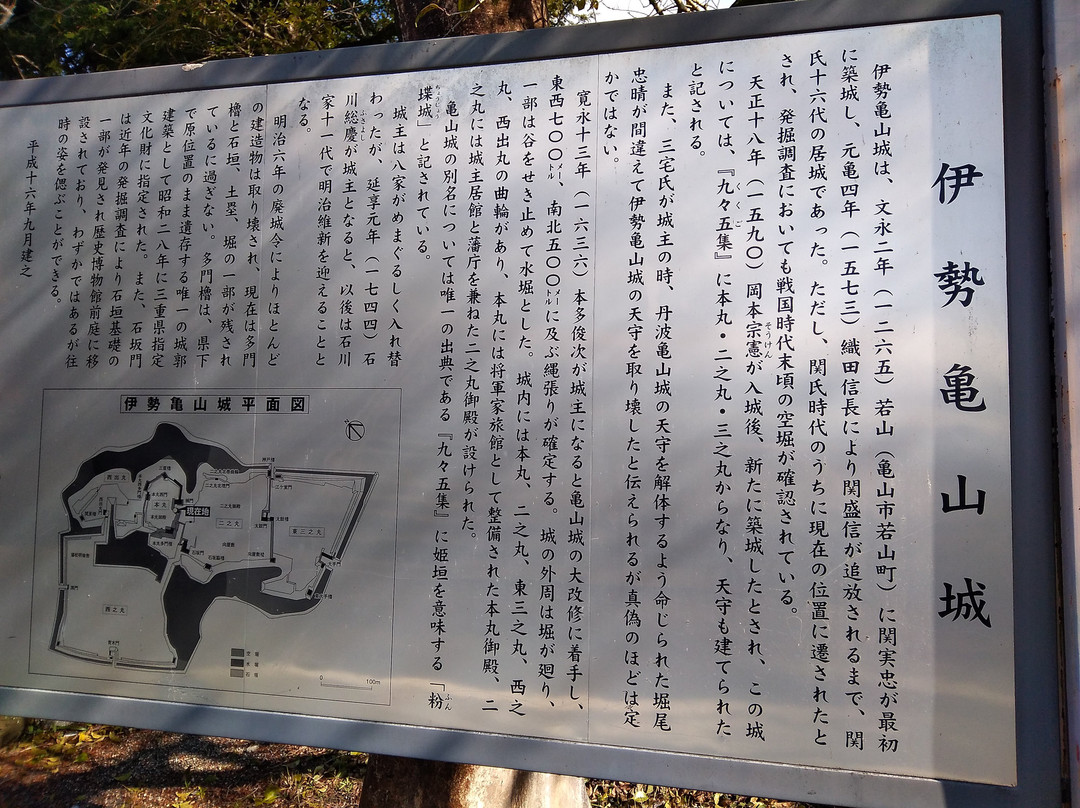 伊勢亀山城
伊勢亀山城は、文永二年（一二六五）若山（亀山市若山町）に関実忠が最初
に築城し、元亀四年（一五七三）織田信長により関盛信が追放されるまで、関
氏十六代の居城であった。ただし、関氏時代のうちに現在の位置に遷されたと
され、発掘調査においても戦国時代末頃の空堀が確認されている。
天正十八年（一五九〇）岡本宗憲が入城後、新たに築城したとされ、この城
そうけん
については、『九々五集』に本丸・二之丸・三之丸からなり、天守も建てられた
くくご
と記される。
また、三宅氏が城主の時、丹波亀山城の天守を解体するよう命じられた堀尾
忠晴が間違えて伊勢亀山城の天守を取り壊したと伝えられるが真偽のほどは定
かではない。
寛永十三年（一六三六）本多俊次が城主になると亀山城の大改修に着手し、
東西七〇〇メートル、南北五〇〇メートルに及ぶ縄張りが確定する。城の外周は堀が廻り、
一部は谷をせき止めて水堀とした。城内には本丸、二之丸、東三之丸、西之
丸、西出丸の曲輪があり、本丸には将軍家旅館として整備された本丸御殿、二
之丸には城主居館と藩庁を兼ねた二之丸御殿が設けられた。
亀山城の別名については唯一の出典である『九々五集』に姫垣を意味する「粉
ふん
堞城」と記されている。
ちょうじょう
城主は八家がめまぐるしく入れ替
わったが、延享元年（一七四四）石
川総慶が城主となると、以後は石川
ふさよし
家十一代で明治維新を迎えることと
なる。
明治六年の廃城令によりほとんど
の建造物は取り壊され、現在は多門
櫓と石垣、土塁、堀の一部が残され
ているに過ぎない。多門櫓は、県下
で原位置のまま遺存する唯一の城郭
建築として昭和二八年に三重県指定
文化財に指定された。また、石坂門
は近年の発掘調査により石垣基礎の
一部が発見され歴史博物館前庭に移
設されており、わずかではあるが往
時の姿を偲ぶことができる。
平成十六年九月建之
伊勢亀山城平面図
西出丸
本丸
現在地
二之丸
東三之丸
西之丸
空堀
水堀
石垣
0
100m